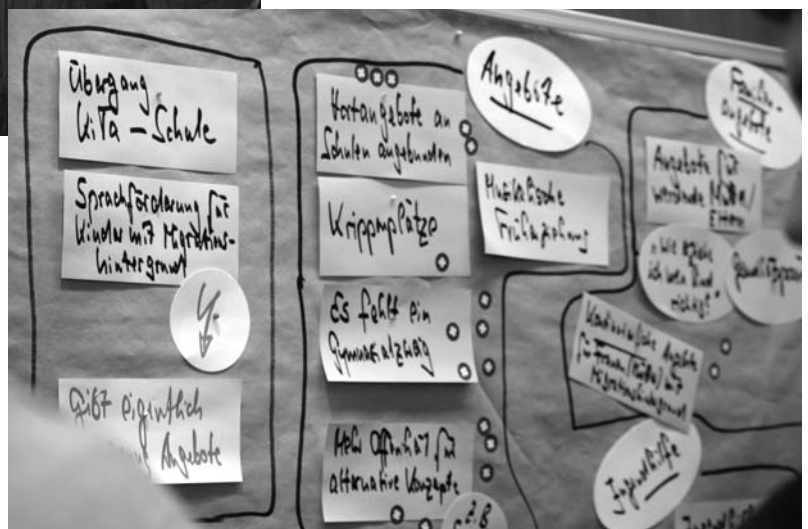 Übergang
Kita – Schule
Sprachförderung für
Kinder mit Migrations-
hintergrund
Gibt eigentlich
Angebote
Hortangebote an
Schulen angebunden
Krippenplätze
Es fehlt ein
Gymnasialzweig
Mehr Offenheit für
alternative Konzepte
z.B
Angebote
Musikalische
Früherziehung
Familien-
angebote
Angebote für
werdende Mütter/
Eltern
"Wie erziehe
ich mein Kind
richtig?"
Angebote
für Frauen (Mütter) mit
Migrationshintergrund
Jugendhilfe